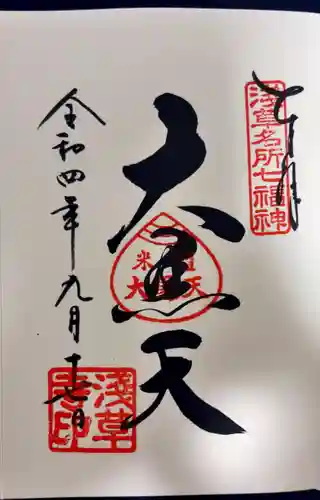 奉拝
浅草名所七福神
大黒天
米粒
大黒天
令和四年九月十七日
浅草寺印